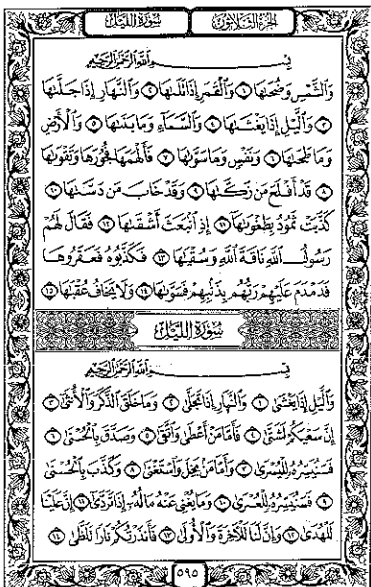 سُورَةُ اللَّيْل الجُزْءُ الثَّلَاثُونَ
بِسْمِ ٱللَّهِ ٱلرَّحْمَٰنِ ٱلرَّحِيمِ
وَٱلشَّمْسِ وَضُحَىٰهَا ١ وَٱلْقَمَرِ إِذَا تَلَىٰهَا ٢ وَٱلنَّهَارِ إِذَا جَلَّىٰهَا
٣ وَٱلَّيْلِ إِذَا يَغْشَىٰهَا ٤ وَٱلسَّمَآءِ وَمَا بَنَىٰهَا ٥ وَٱلْأَرْضِ
وَمَا طَحَىٰهَا ٦ وَنَفْسٍ وَمَا سَوَّىٰهَا ٧ فَأَلْهَمَهَا فُجُورَهَا وَتَقْوَىٰهَا
٨ قَدْ أَفْلَحَ مَن زَكَّىٰهَا ٩ وَقَدْ خَابَ مَن دَسَّىٰهَا ١٠
كَذَّبَتْ ثَمُودُ بِطَغْوَىٰهَآ ١١ إِذِ ٱنۢبَعَثَ أَشْقَىٰهَا ١٢ فَقَالَ لَهُمْ
رَسُولُ ٱللَّهِ نَاقَةَ ٱللَّهِ وَسُقْيَٰهَا ١٣ فَكَذَّبُوهُ فَعَقَرُوهَا
فَدَمْدَمَ عَلَيْهِمْ رَبُّهُم بِذَنۢبِهِمْ فَسَوَّىٰهَا ١٤ وَلَا يَخَافُ عُقْبَٰهَا ١٥
سُورَةُ اللَّيْل
بِسْمِ ٱللَّهِ ٱلرَّحْمَٰنِ ٱلرَّحِيمِ
وَٱلَّيْلِ إِذَا يَغْشَىٰ ١ وَٱلنَّهَارِ إِذَا تَجَلَّىٰ ٢ وَمَا خَلَقَ ٱلذَّكَرَ وَٱلْأُنثَىٰٓ ٣
إِنَّ سَعْيَكُمْ لَشَتَّىٰ ٤ فَأَمَّا مَنْ أَعْطَىٰ وَٱتَّقَىٰ ٥ وَصَدَّقَ بِٱلْحُسْنَىٰ ٦
فَسَنُيَسِّرُهُۥ لِلْيُسْرَىٰ ٧ وَأَمَّا مَنۢ بَخِلَ وَٱسْتَغْنَىٰ ٨ وَكَذَّبَ بِٱلْحُسْنَىٰ
٩ فَسَنُيَسِّرُهُۥ لِلْعُسْرَىٰ ١٠ وَمَا يُغْنِي عَنْهُ مَالُهُۥٓ إِذَا تَرَدَّىٰٓ ١١ إِنَّ عَلَيْنَا
لَلْهُدَىٰ ١٢ وَإِنَّ لَنَا لَلْءَاخِرَةَ وَٱلْأُولَىٰ ١٣ فَأَنذَرْتُكُمْ نَارًا تَلَظَّىٰ ١٤
٥٩٥